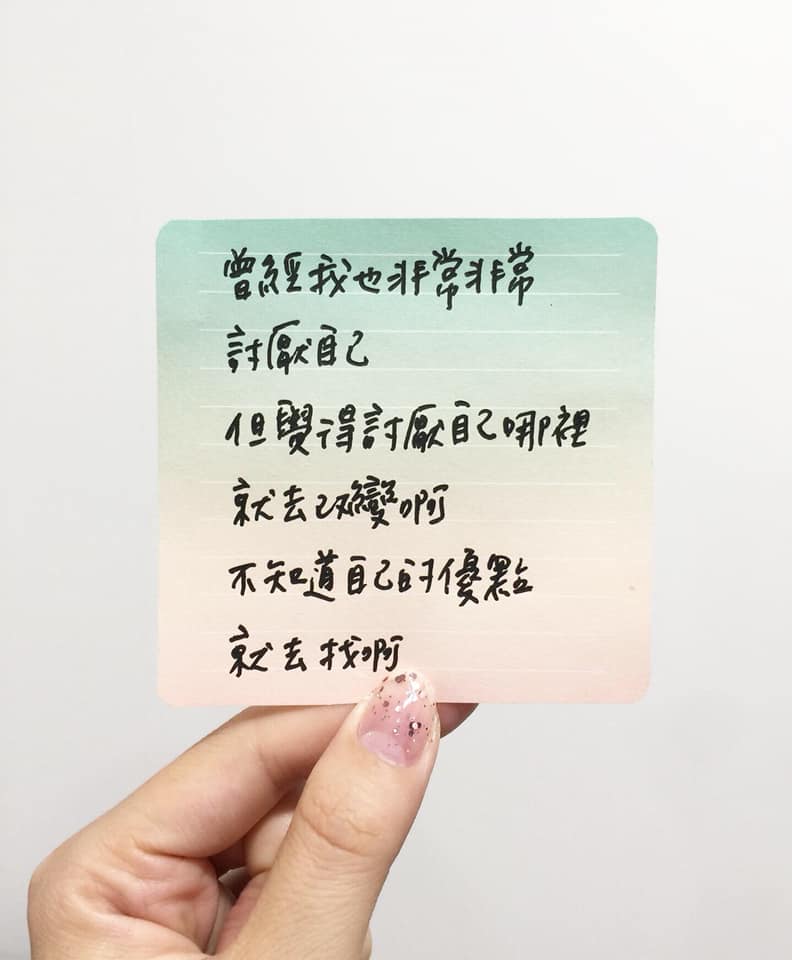 曾經我也非常非常
討厭自己
但覺得討厭自己哪裡
就去改變啊
不知道自己的優點
就去找啊